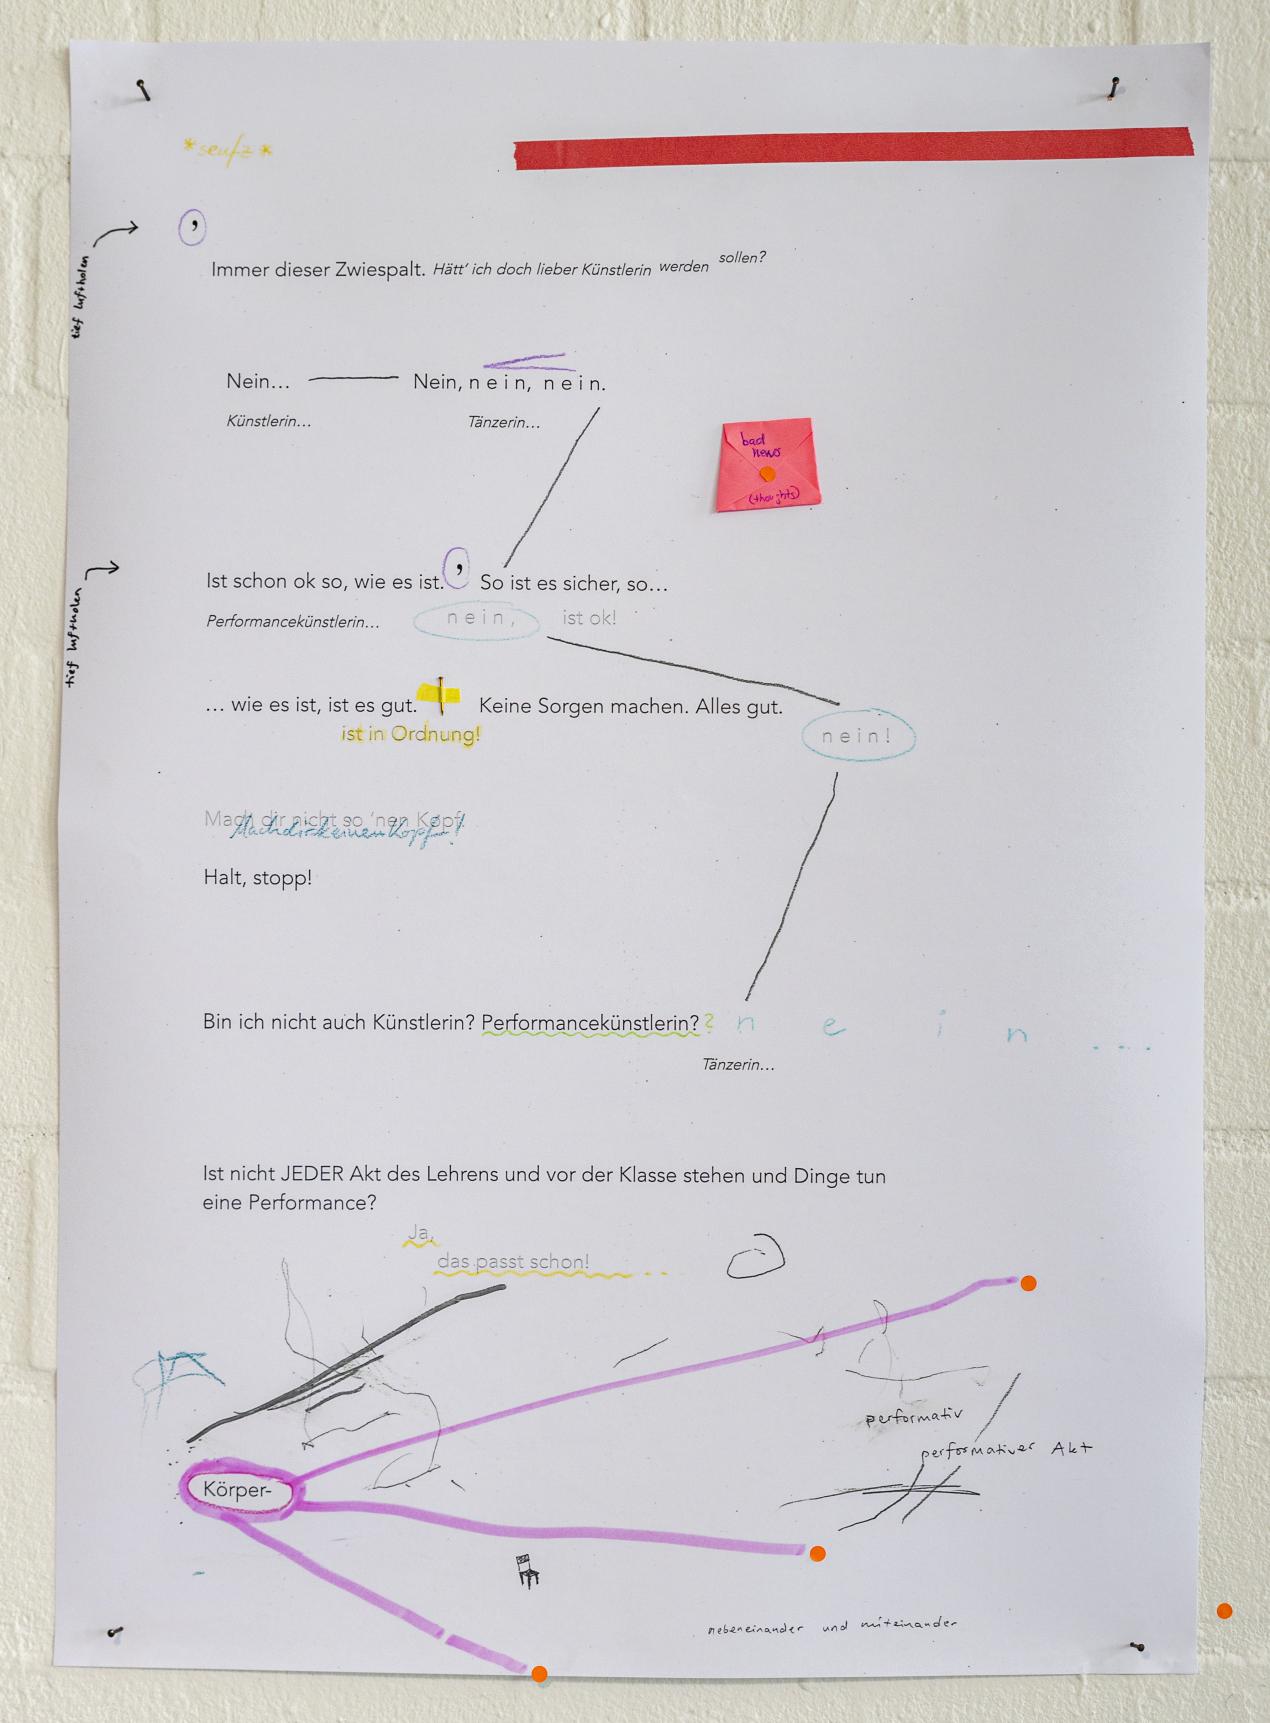 *seufz*
,
tief luftholen
Immer dieser Zwiespalt. Hätt' ich doch lieber Künstlerin werden sollen?
Nein... Nein, n e i n, n e i n.
Künstlerin... Tänzerin...
bad
news
(thoughts)
tief luftholen
Ist schon ok so, wie es ist. , So ist es sicher, so...
Performancekünstlerin... n e i n , ist ok!
... wie es ist, ist es gut. Keine Sorgen machen. Alles gut.
ist in Ordnung! n e i n !
Mach dir nicht so 'nen Kopf!
Mach dir keinen Kopf!
Halt, stopp!
Bin ich nicht auch Künstlerin? Performancekünstlerin? ? n e i n ...
Tänzerin...
Ist nicht JEDER Akt des Lehrens und vor der Klasse stehen und Dinge tun
eine Performance?
Ja,
das passt schon! ...
performativ
performativer Akt
Körper-
nebeneinander und miteinander